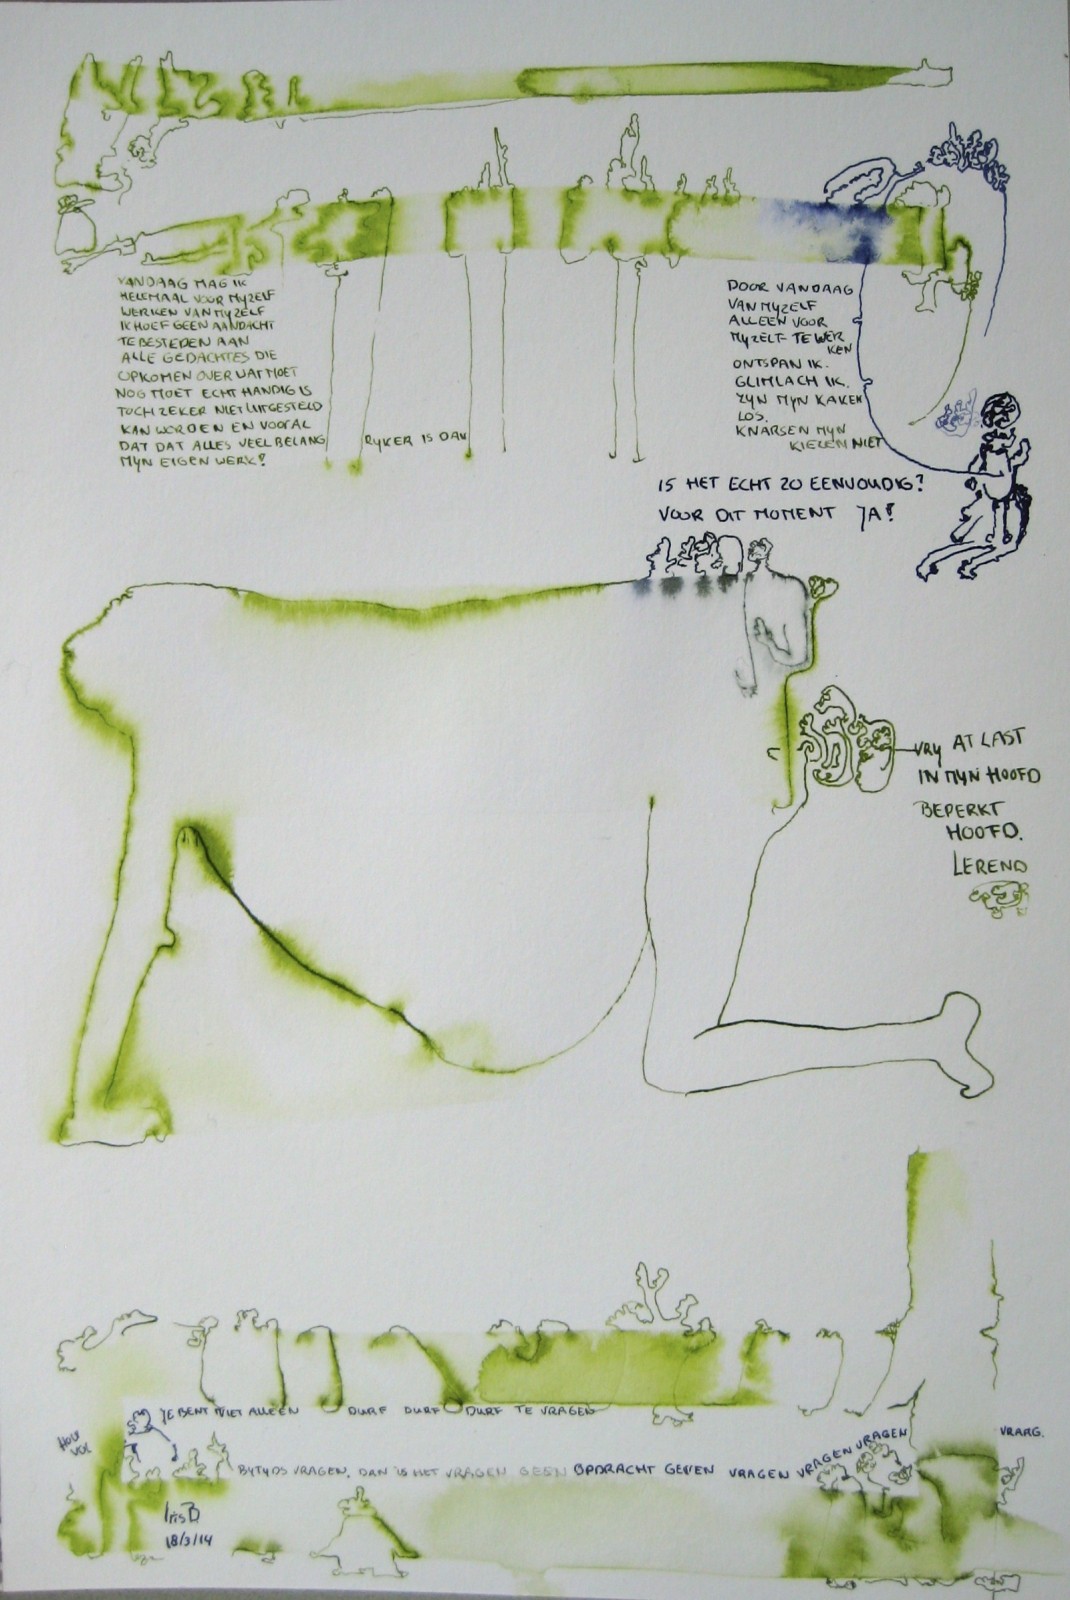 VANDAAG MAG IK
HELEMAAL VOOR MYZELF
WERKEN VAN MYZELF
IK HOEF GEEN AANDACHT
TE BESTEDEN AAN
ALLE GEDACHTES DIE
OPKOMEN OVER WAT MOET
NOG MOET ECHT HANDIG IS
TOCH ZEKER NIET UITGESTELD
KAN WORDEN EN VOORAL
DAT DAT ALLES VEEL BELANG
RYKER IS DAN
MYN EIGEN WERK!
DOOR VANDAAG
VAN MYZELF
ALLEEN VOOR
MYZELF TE WER
KEN
ONTSPAN IK.
GLIMLACH IK.
ZYN MYN KAKEN
LOS.
KNARSEN MYN
KIEZEN NIET
IS HET ECHT ZO EENVOUDIG?
VOOR DIT MOMENT JA!
VRY AT LAST
IN MYN HOOFD
BEPERKT
HOOFD.
LEREND
JE BENT NIET ALLEEN DURF DURF DURF TE VRAGEN
HOU
VOL
VRAAG.
BYTYDS VRAGEN, DAN IS HET VRAGEN GEEN OPDRACHT GEVEN VRAGEN VRAGEN VRAGEN
Iris B
18/3/14